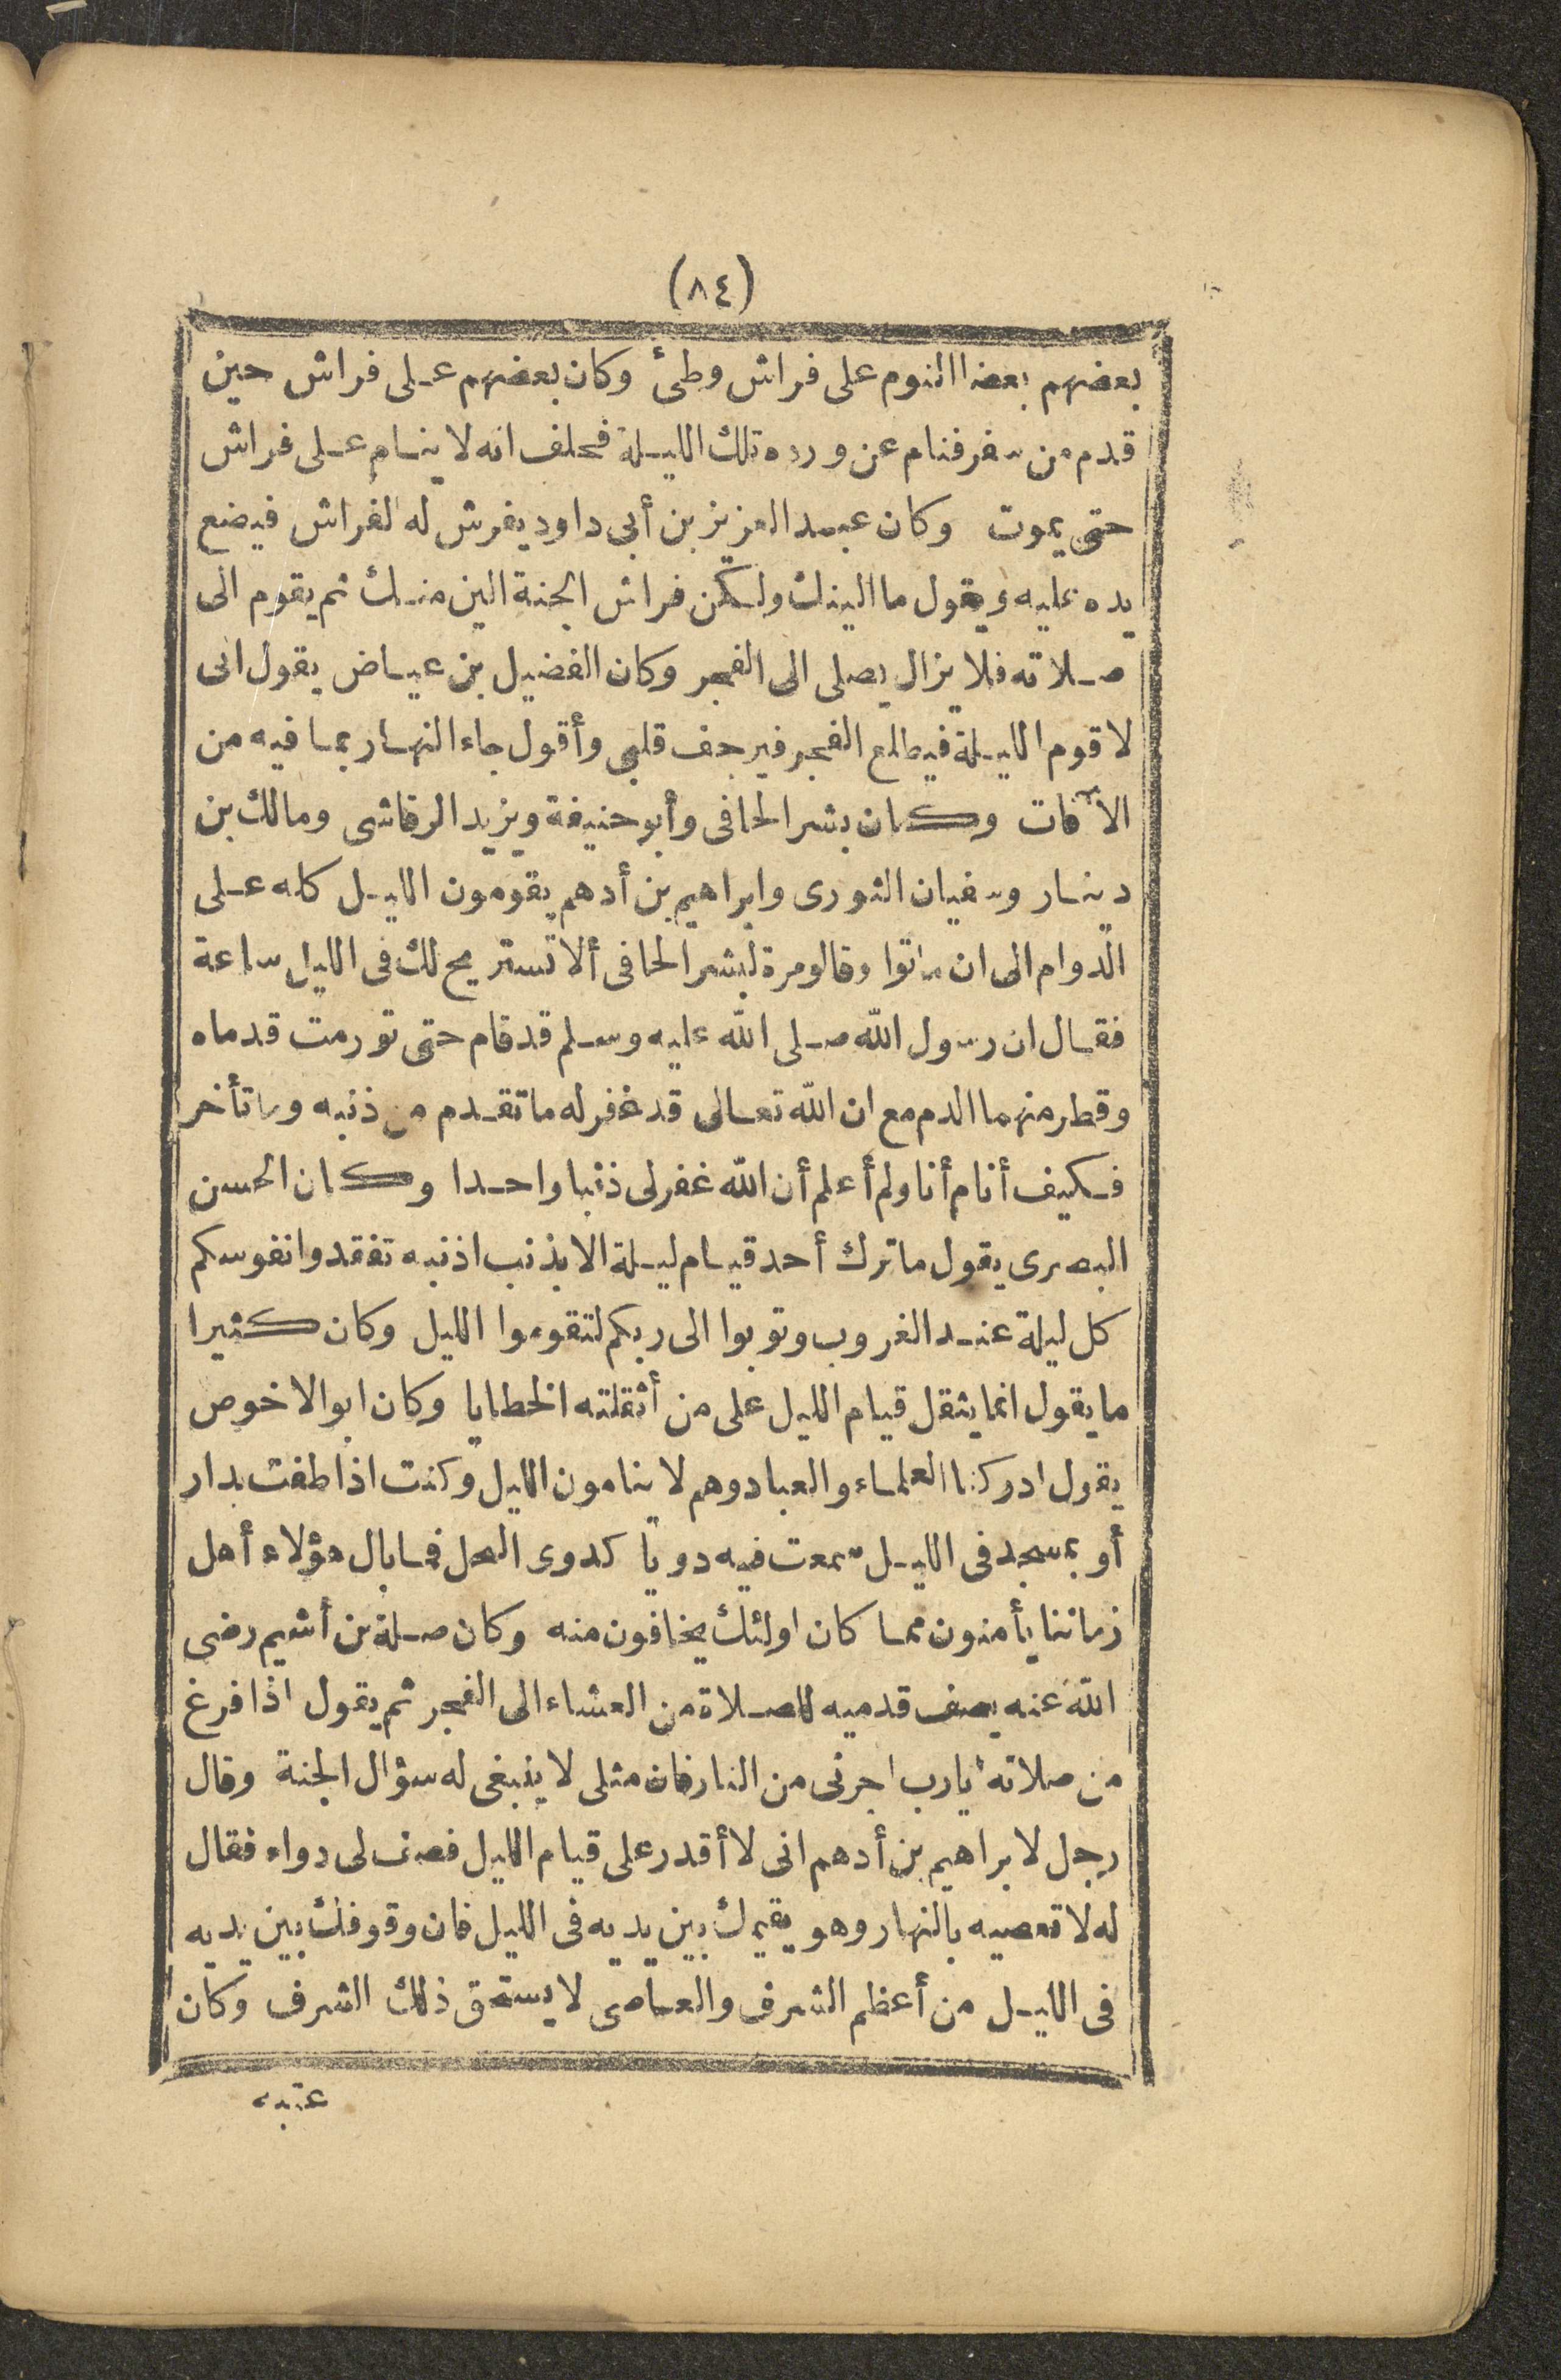 (٨٤)
بعضهم بعضا النوم على فراش وطئ وكان بعضهم على فراش حين
قدم من سفر فنام عن ورده تلك الليلة فحلف انه لا ينام على فراش
حتى يموت وكان عبد العزيز بن أبى داود يفرش له الفراش فيضع
يده عليه ويقول ما الينك ولكن فراش الجنة الين منك ثم يقوم الى
صلاته فلا يزال يصلى الى الفجر وكان الفضيل بن عياض يقول انى
لا قوم الليلة فيطلع الفجر فيرجف قلبى وأقول جاء النهار بما فيه من
الآفات وكان بشر الحافى وأبو حنيفة ويزيد الرقاشى ومالك بن
دينار وسفيان الثورى وابراهيم بن أدهم يقومون الليل كله على
الدوام الى ان ماتوا وقالو مرة لبشر الحافى ألا تستريح لك فى الليل ساعة
فقال ان رسول الله صلى الله عليه وسلم قد قام حتى تورمت قدماه
وقطر منهما الدم مع ان الله تعالى قد غفر له ما تقدم من ذنبه وما تأخر
فكيف أنام أنا ولم أعلم أن الله غفر لى ذنبا واحدا وكان الحسن
البصرى يقول ما ترك أحد قيام ليلة الا بذنب اذنبه تفقدوا نفوسكم
كل ليلة عند الغروب وتوبوا الى ربكم لتقوموا الليل وكان كثيرا
ما يقول انما يثقل قيام الليل على من أثقلته الخطايا وكان ابو الاخوص
يقول ادركنا العلماء والعباد وهم لا ينامون الليل وكنت اذا طفت بدار
أو بمسجد فى الليل سمعت فيه دويا كدوى النحل فما بال هؤلاء أهل
زماننا يأمنون مما كان اولئك يخافون منه وكان صلة بن أشيم رضى
الله عنه يصف قدميه للصلاة من العشاء الى الفجر ثم يقول اذا فرغ
من صلاته يارب اجرنى من النار فان مثلى لا ينبغى له سؤال الجنة وقال
رجل لابراهيم بن أدهم انى لا أقدر على قيام الليل فصف لى دواء فقال
له لا تعصيه بالنهار وهو يقيمك بين يديه فى الليل فان وقوفك بين يديه
فى الليل من أعظم الشرف والعاصى لا يستحق ذلك الشرف وكان
عتبة